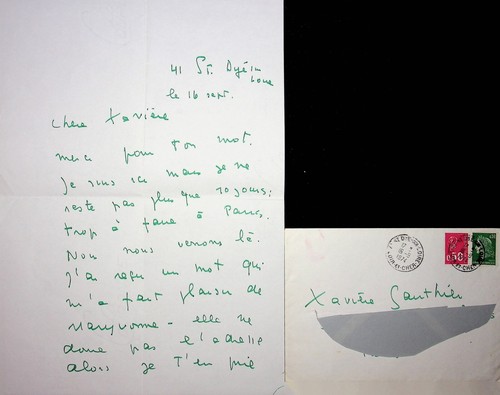 41 St. Dyé s/
Loire
le 16 sept.
Chère Xavière
merci pour ton mot.
je suis ici mais je ne
reste pas plus que 10 jours:
trop à faire à Paris.
Nous nous verrons là.
J'ai reçu un mot qui
m'a fait plaisir de
Maryvonne - elle ne
donne pas l'adresse
alors je t'en prie
LOIR-ET-CHER
0,50
Xavière Gauthier